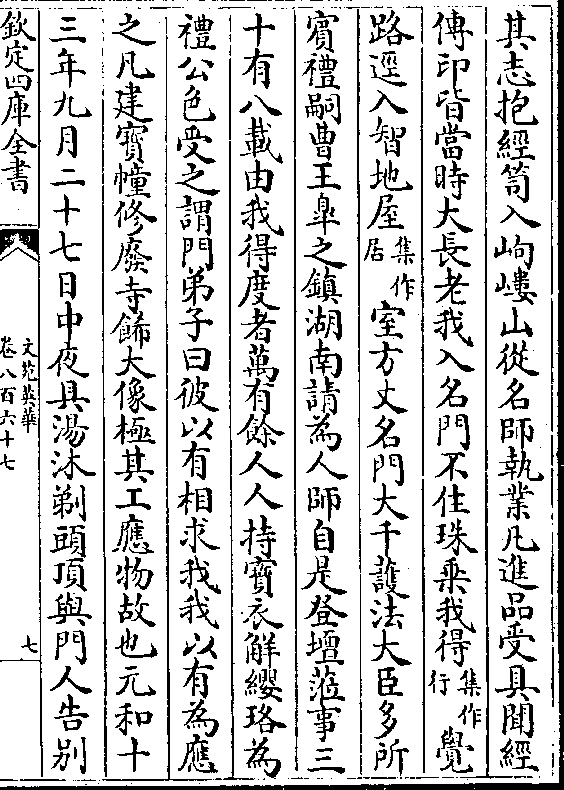 其志抱經笥入岣嶁山從名師執業凡進品受具聞經
傳印皆當時大長老我入名門不住珠乗我得集作行覺
路逕入智地屋集作居室方丈名門大千護法大臣多所
賔禮嗣曹王臯之鎮湖南請為人師自是登壇蒞事三
十有八載由我得度者萬有餘人人持寳衣解纓珞為
禮公色受之謂門弟子曰彼以有相求我我以有為應
之凡建寳幢修廢寺飾大像極其工應物故也元和十
三年九月二十七日中夜具湯沐剃頭頂與門人告别
欽定四庫全書
文苑英華
卷八百六十七
七